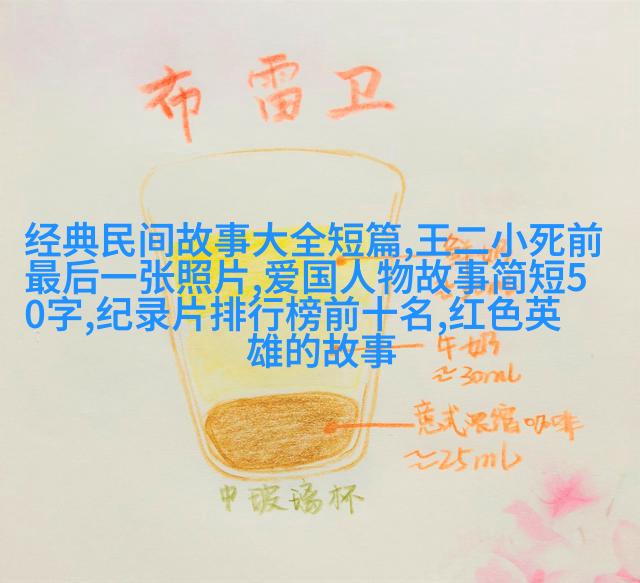 布雷卫
经典民间故事大全短篇,王二小死前
最后一张照片,爱国人物故事简短5
0字,纪录片排行榜前十名,红色英
雄的故事
牛奶
≈30ml
意式浓缩咖啡
≈25ml
中玻璃杯